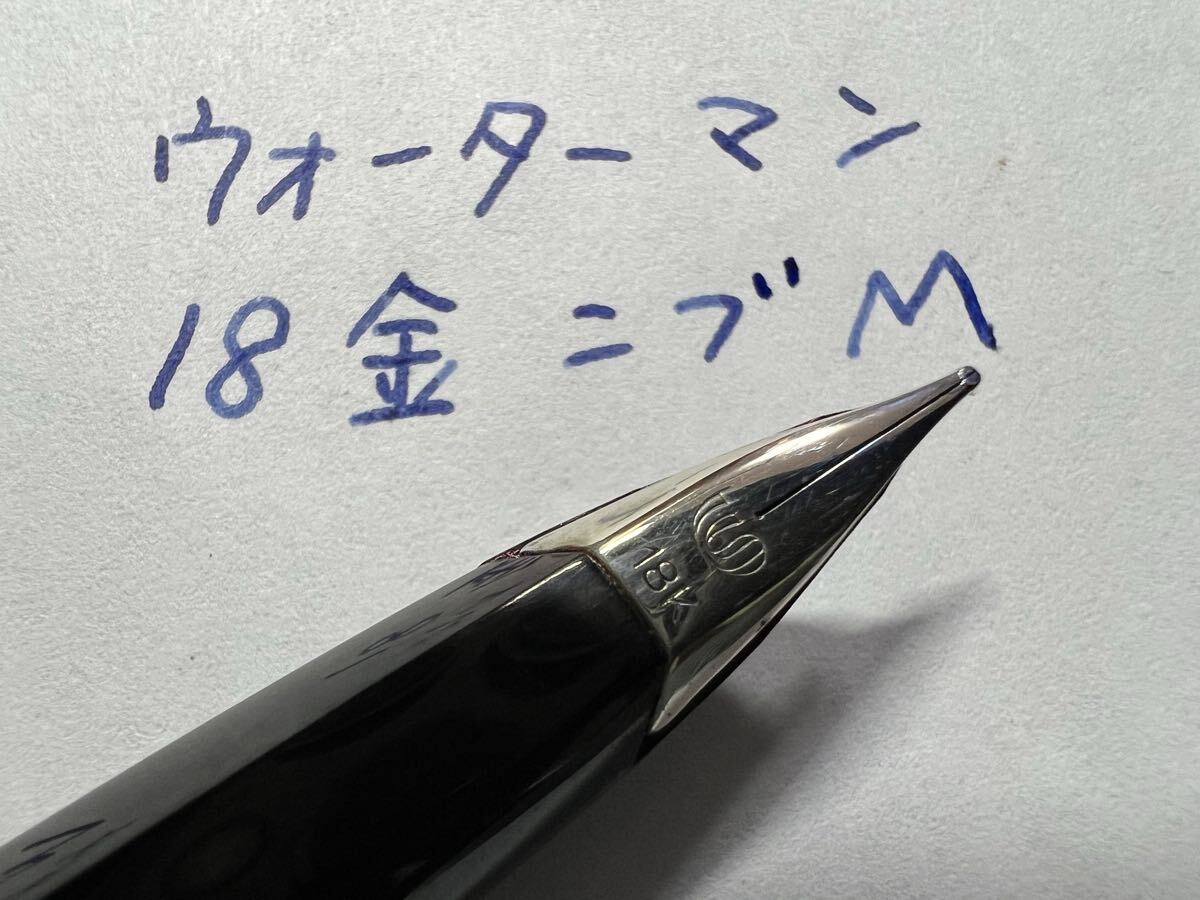 ウォーターマン
18金ニブM
18K